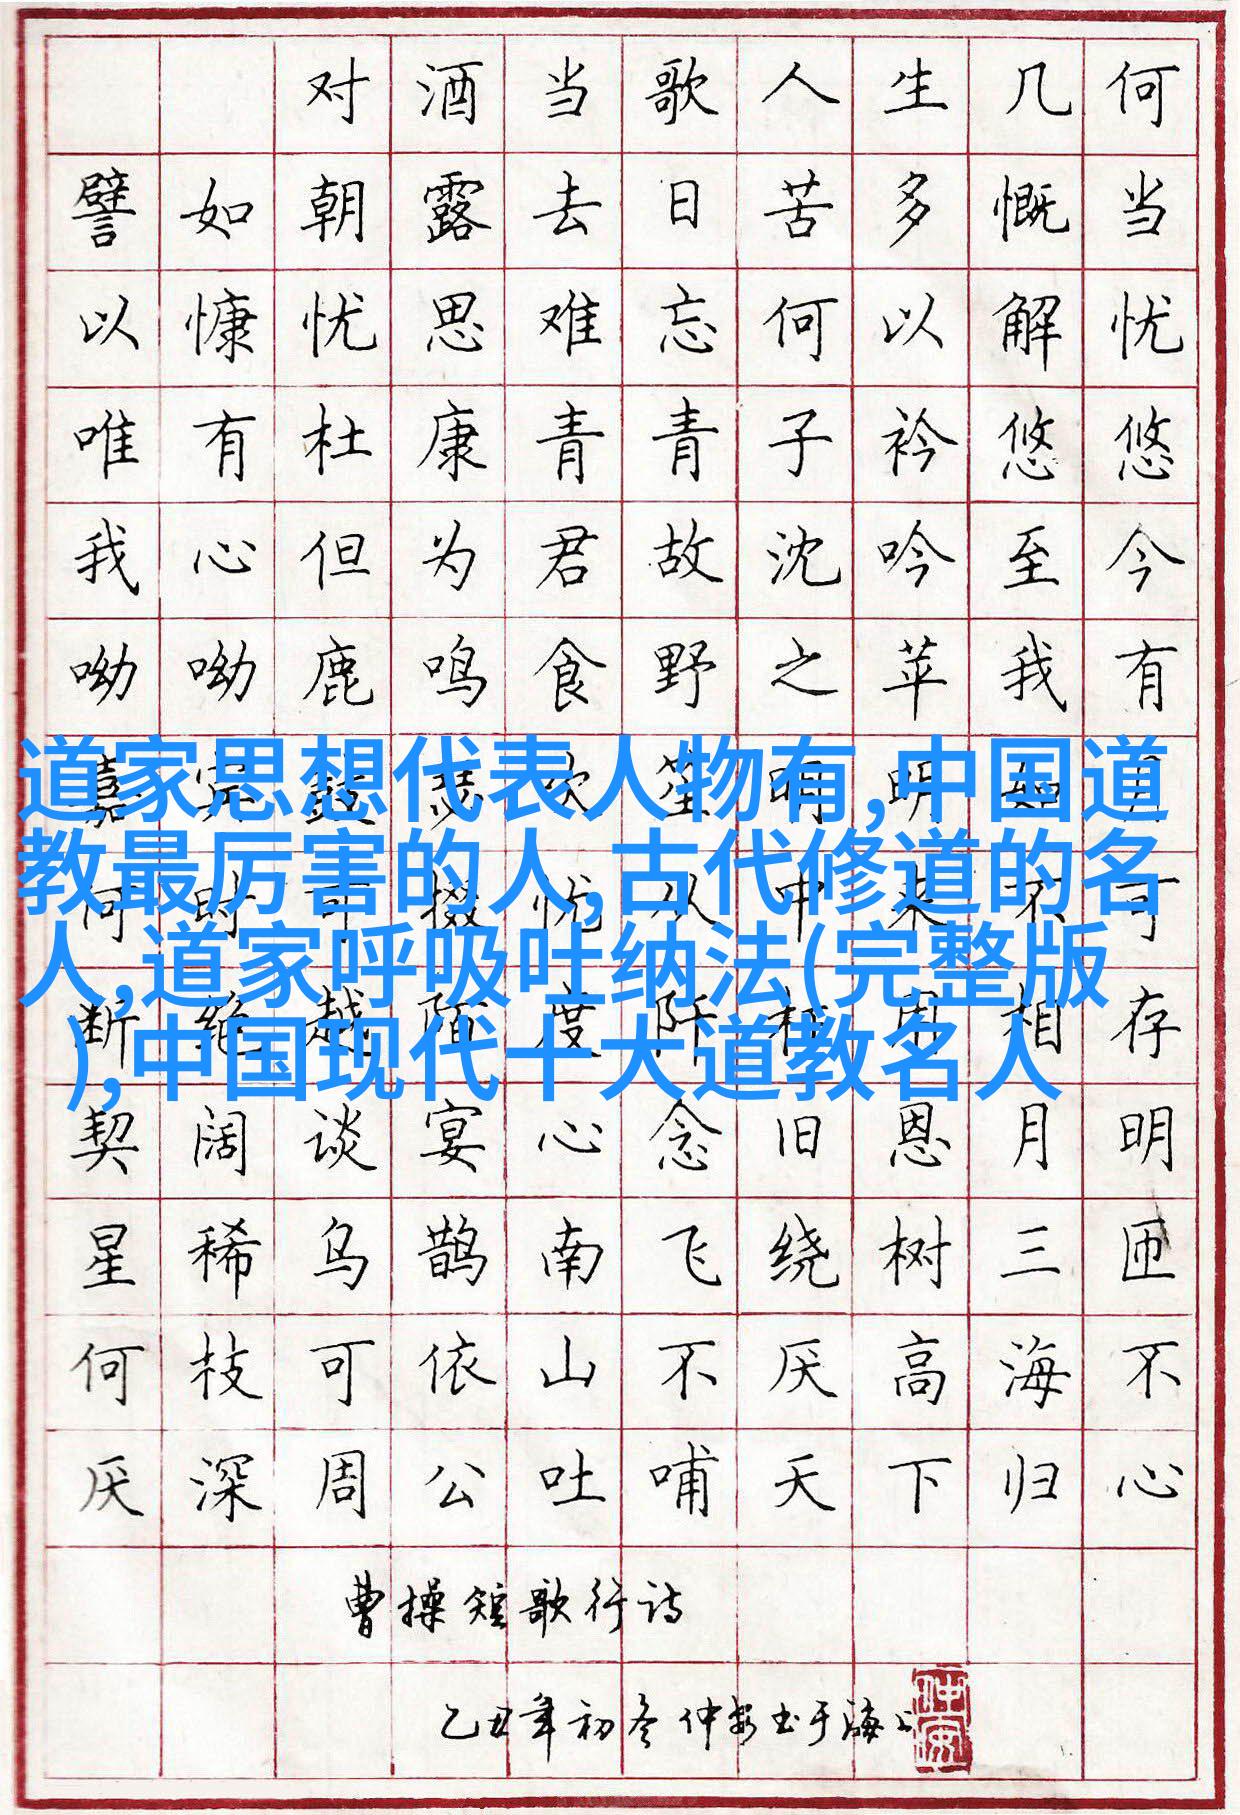 对酒当歌人生几何
譬如朝露去日苦多慨当
以慷忧思难忘何以解忧
唯有杜康青青子衿悠悠
我心但为君故沈吟至今
呦呦鹿鸣食野之苹我有
道家思想代表人物有,中国道
教最厉害的人,古代修道的名
人,道家呼吸吐纳法(完整版
),中国现代十大道教名人
嘉宾鼓瑟吹笙明明如月
何时可掇忧从中来不可
断绝越陌度阡枉用相存
契阔谈宴心念旧恩月明
星稀乌鹊南飞绕树三匝
何枝可依山不厌高海不
厌深周公吐哺天下归心
曹操短歌行诗
乙丑年初冬仲安书于海上
仲安